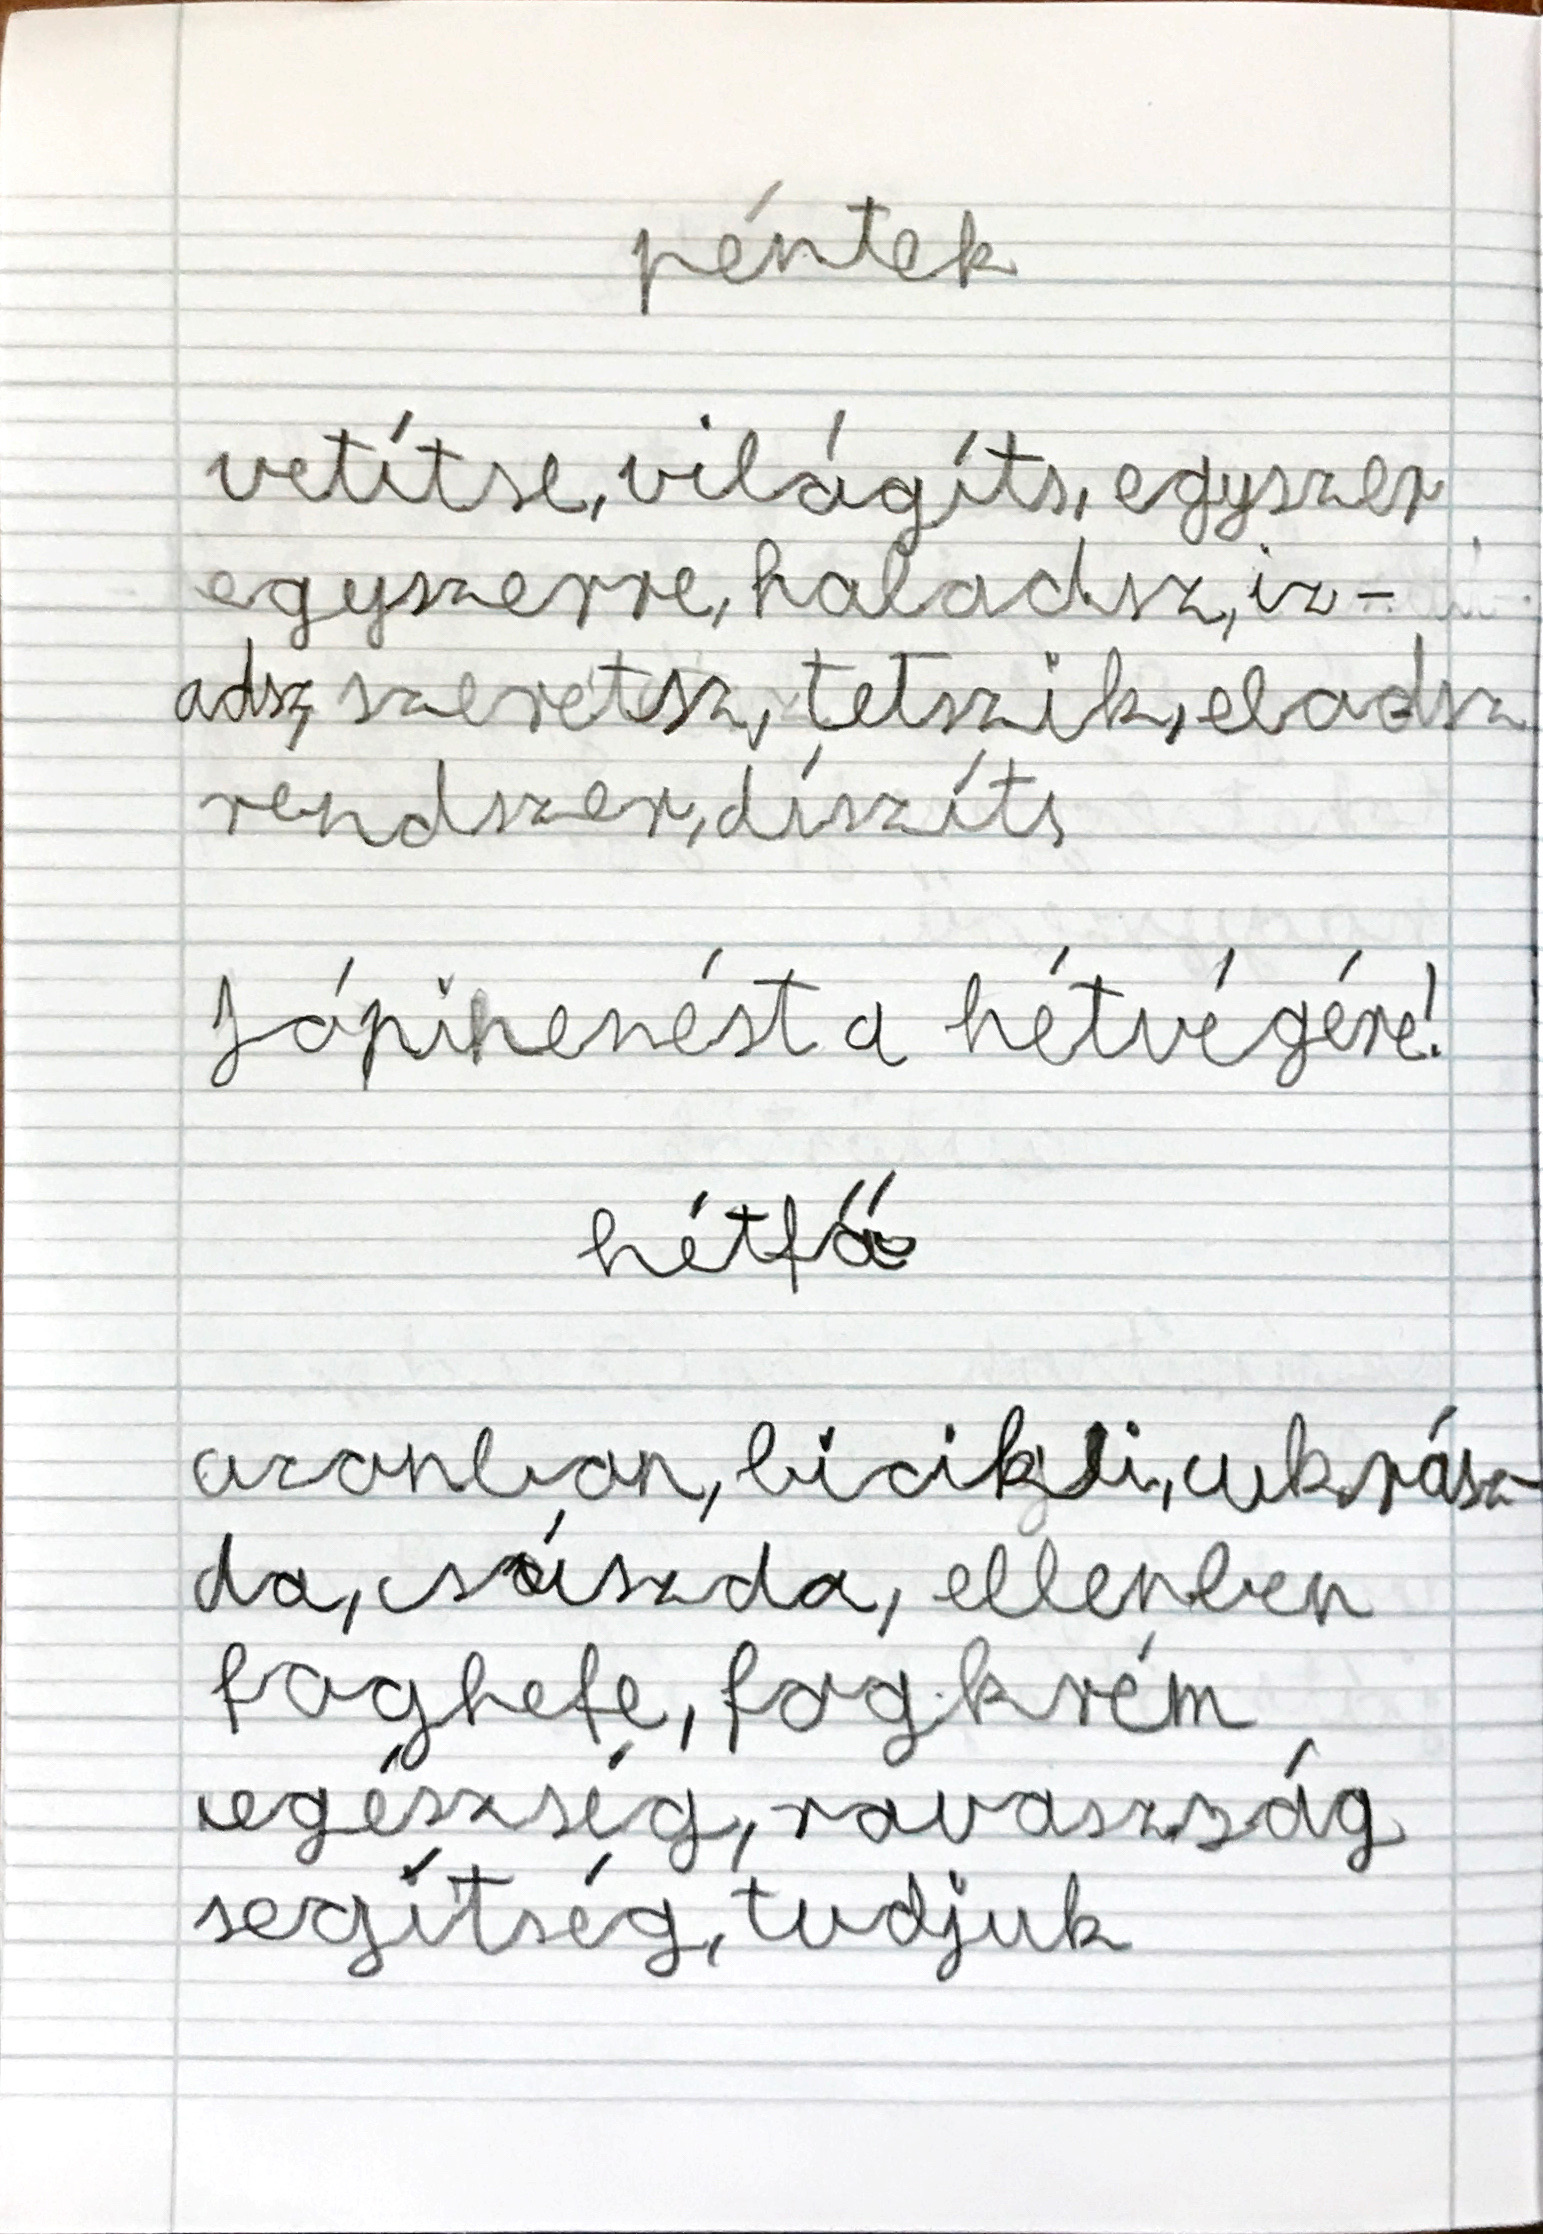 péntek
vetítse, világíts, egyszer
egyszerre, haladsz, iz-
adsz, szeretsz, tetszik, eladsz
rendszer, díszíts
Jó pihenést a hétvégére!
hétfő
azonban, bicikli, cukrász-
da, csúszda, ellenben
foghefe, fogkrém
egészség, ravaszság
segítség, tudjuk